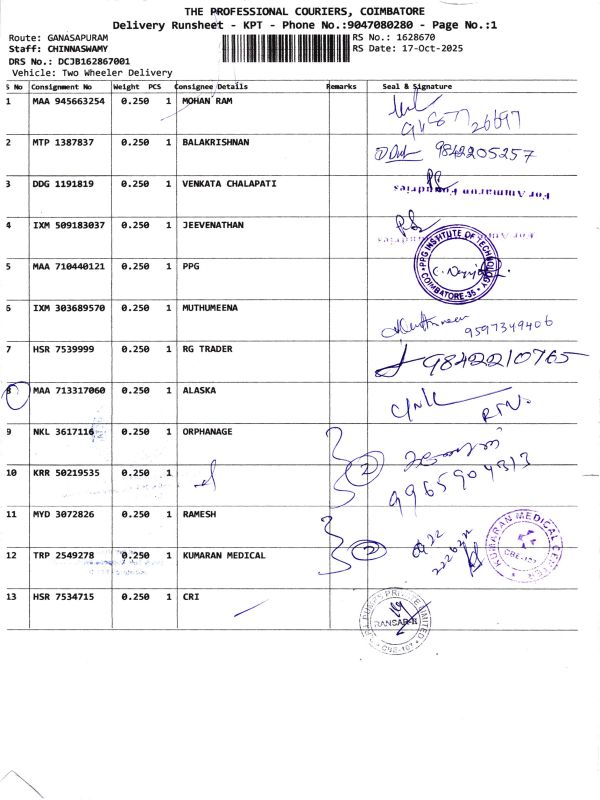 THE PROFESSIONAL COURIERS, COIMBATORE
Delivery Runsheet - KPT - Phone No.:9047080280 - Page No.:1
Route: GANASAPURAM RS No.: 1628670
Staff: CHINNASWAMY RS Date: 17-Oct-2025
DRS No.: DCJB162867001
Vehicle: Two Wheeler Delivery
S No Consignment No Weight PCS Consignee Details Remarks Seal & Signature
1 MAA 945663254 0.250 1 MOHAN RAM
2 MTP 1387837 0.250 1 BALAKRISHNAN 9842205257
3 DDG 1191819 0.250 1 VENKATA CHALAPATI
For Ammarun Foundries
4 IXM 509183037 0.250 1 JEEVENATHAN
PPG INSTITUTE OF TECHNOLOGY
5 MAA 710440121 0.250 1 PPG
COIMBATORE-35
6 IXM 303689570 0.250 1 MUTHUMEENA
9597349406
7 HSR 7539999 0.250 1 RG TRADER 9842210765
8 MAA 713317060 0.250 1 ALASKA
9 NKL 3617116 0.250 1 ORPHANAGE
10 KRR 50219535 0.250 1 2
9965904313
11 MYD 3072826 0.250 1 RAMESH
12 TRP 2549278 0.250 1 KUMARAN MEDICAL 2
KUMARAN MEDICAL CENTER
CBE-107
13 HSR 7534715 0.250 1 CRI
PUMPS PRIVATE LIMITED
CBE-107